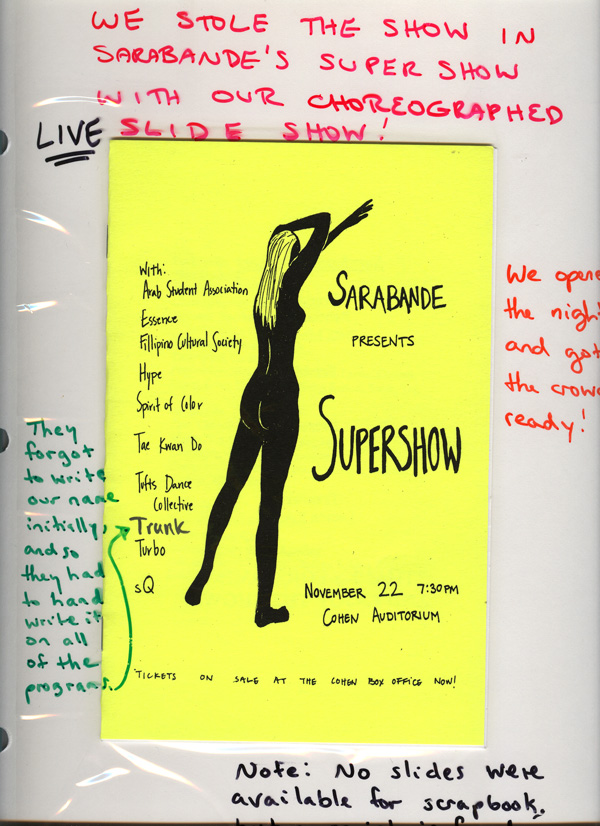 WE STOLE THE SHOW IN
SARABANDE'S SUPER SHOW
WITH OUR CHOREOGRAPHED
LIVE SLIDE SHOW!
With:
Arab Student Association
Essence
Fillipino Cultural Society
Hype
Spirit of Color
Tae Kwan Do
Tufts Dance
Collective
Trunk
Turbo
sQ
SARABANDE
PRESENTS
SUPERSHOW
NOVEMBER 22 7:30PM
COHEN AUDITORIUM
TICKETS ON SALE AT THE COHEN BOX OFFICE NOW!
They
forgot
to write
our name
initially,
and so
they had
to hand
write it
on all
of the
programs.
We opene
the nigh
and got
the crow
ready!
Note: No slides were
available for scrapbook.